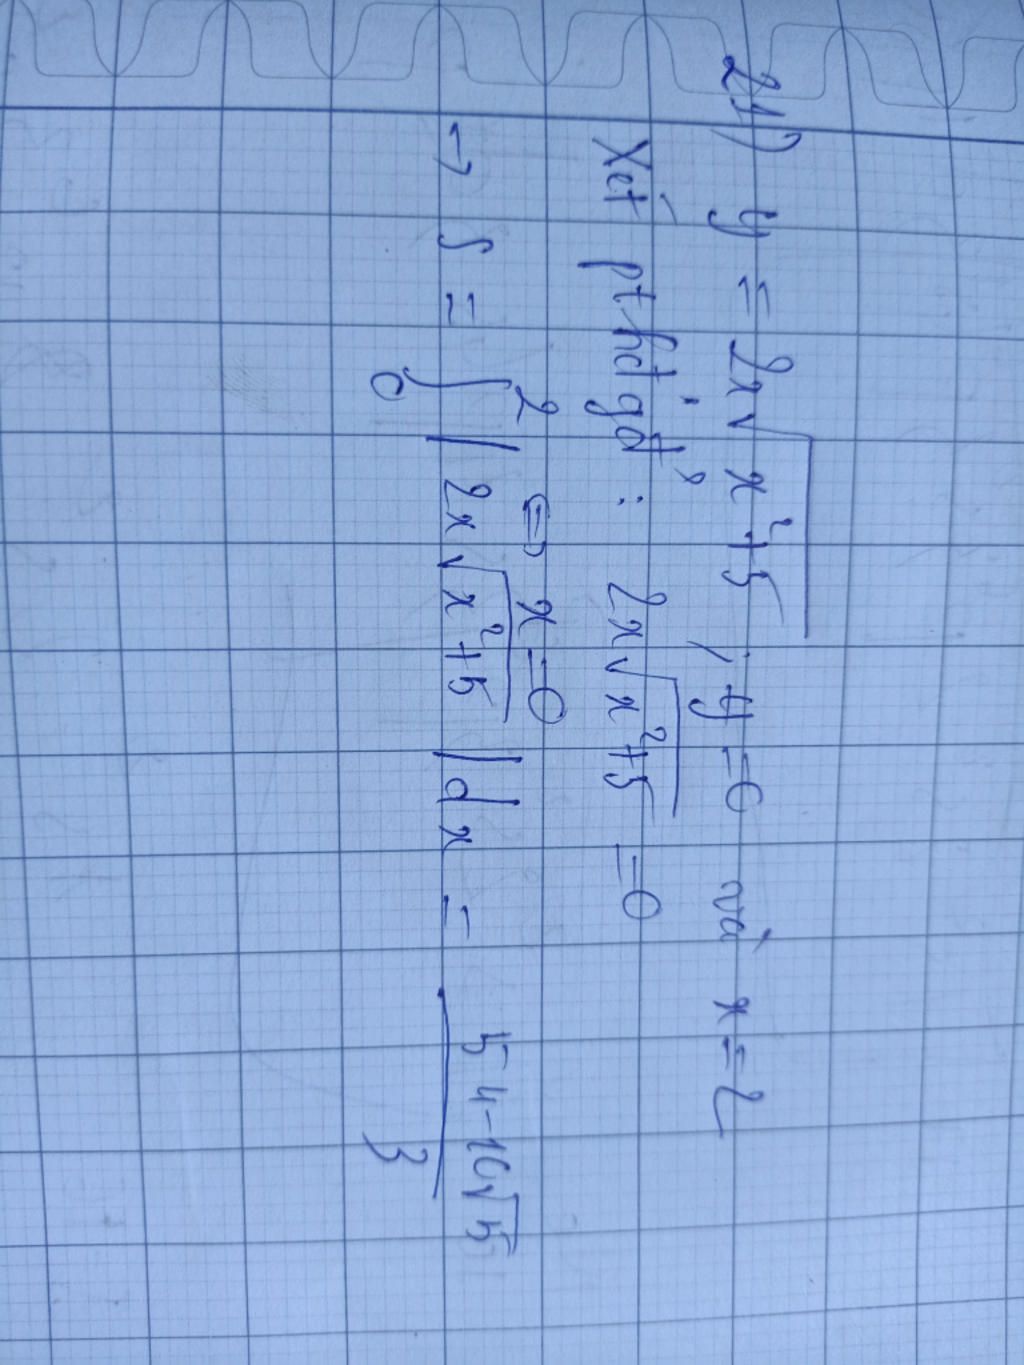 21) y = 2x√(x²+5) ; y = 0 và x = 2
Xét pthđgđ : 2x√(x²+5) = 0
⇔ x = 0
→ S = ∫₀² |2x√(x²+5)| dx = (54-10√5)/3